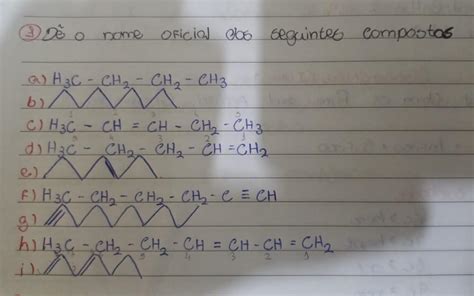 3) Dê o nome oficial dos seguintes compostos
a) H3C - CH2 - CH2 - CH3
b)
c) H3C - CH = CH - CH2 - CH3
d) H3C - CH2 - CH2 - CH = CH2
e)
f) H3C - CH2 - CH2 - CH2 - C ≡ CH
g)
h) H3C - CH2 - CH2 - CH = CH - CH = CH2
i)